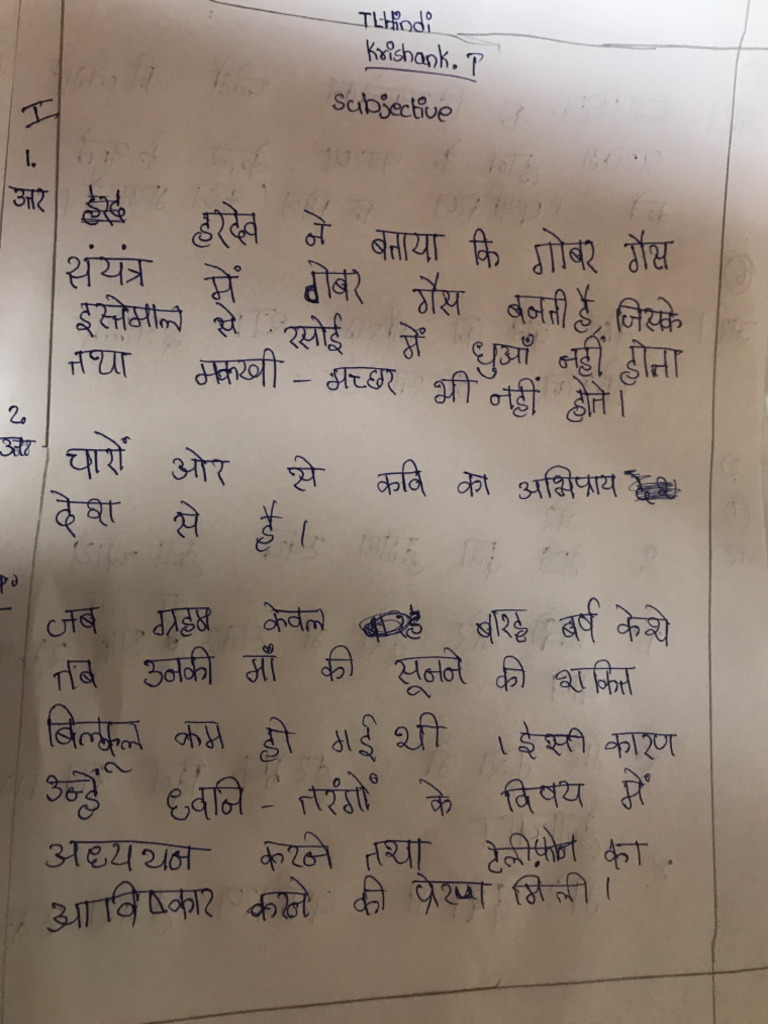 TL Hindi
Krishank. P
Subjective
I
1.
उत्तर हरदेव ने बताया कि गोबर गैस
संयंत्र में गोबर गैस बनती है, जिसके
इस्तेमाल से रसोई में धुआँ नहीं होता
तथा मक्खी - मच्छर भी नहीं होते।
2.
उत्तर चारों ओर से कवि का अभिप्राय
देश से है।
जब ग्रहम केवल बारह बर्ष के थे
तब उनकी माँ की सूनने की शक्ति
बिल्कूल कम हो गई थी । इस्ती कारण
उन्हें ध्वनि - तरंगों के विषय में
अध्ययन करने तथा टेलीफ़ोन का
आविष्कार करने की प्रेरणा मिली।